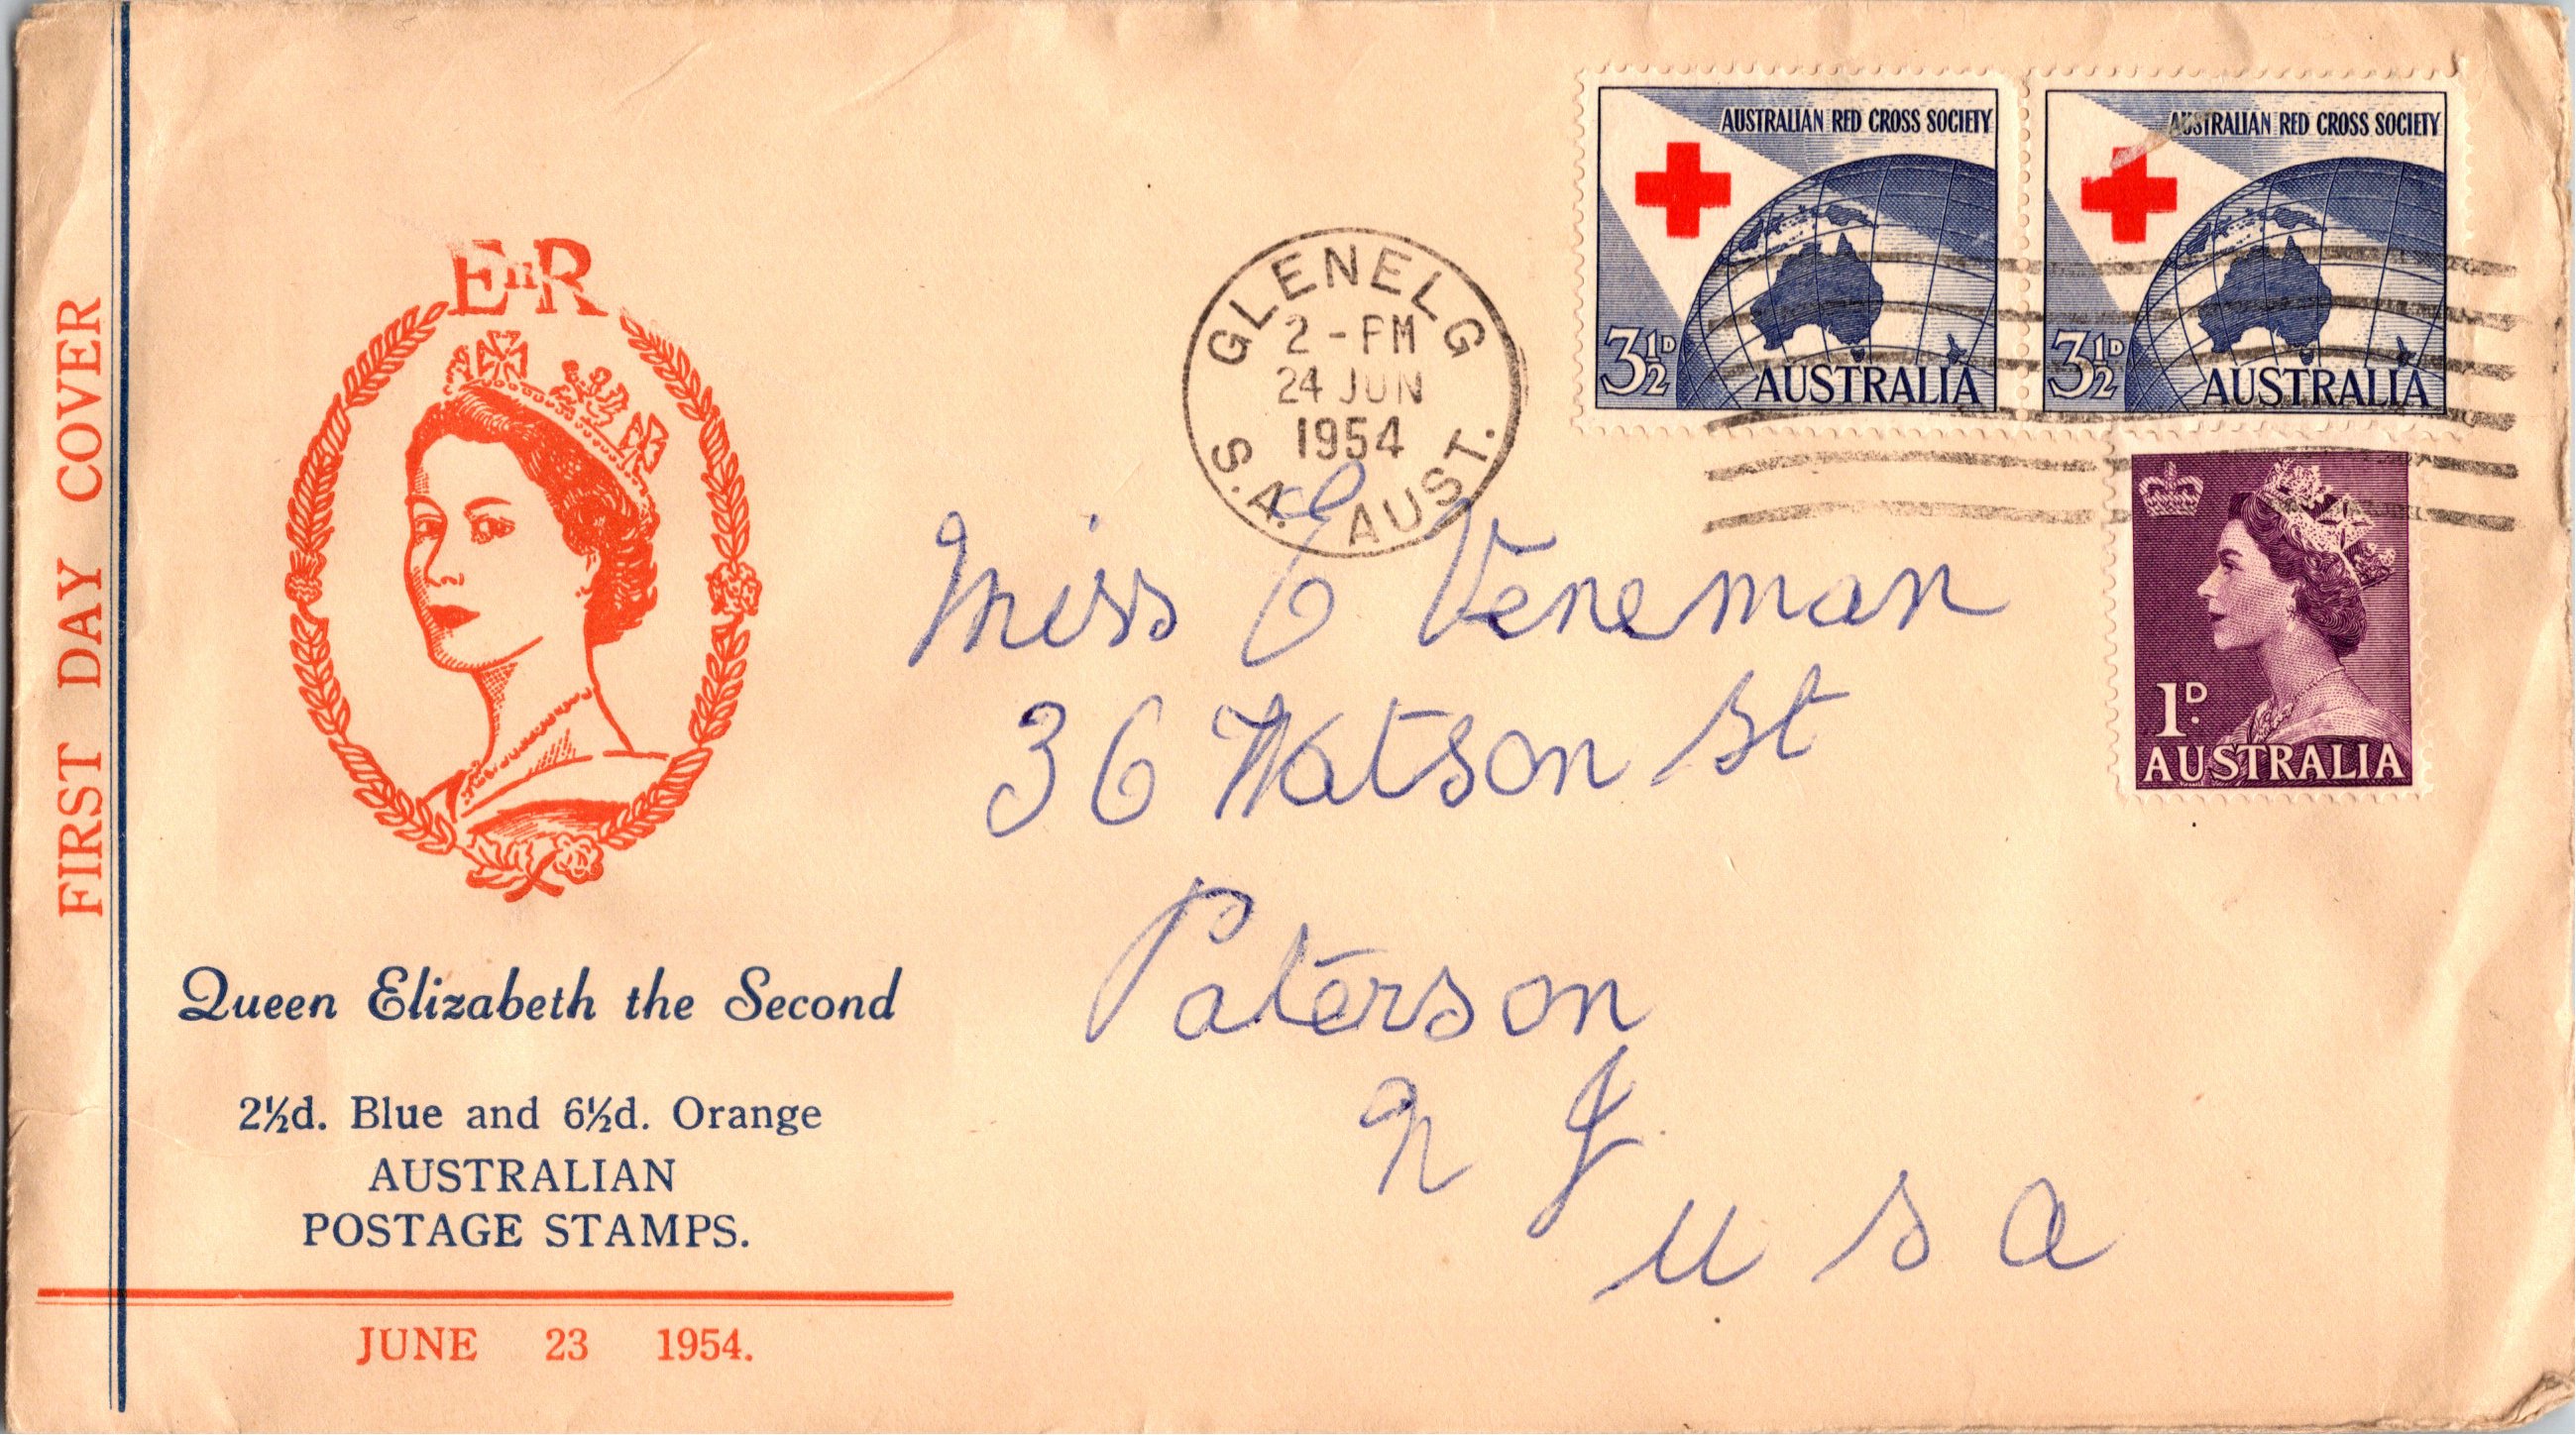 FIRST DAY COVER
EIIR
Queen Elizabeth the Second
2½d. Blue and 6½d. Orange
AUSTRALIAN
POSTAGE STAMPS.
JUNE 23 1954.
GLENELG
2-PM
24 JUN
1954
S.A. AUST.
AUSTRALIAN RED CROSS SOCIETY
3½D
AUSTRALIA
AUSTRALIAN RED CROSS SOCIETY
3½D
AUSTRALIA
1D.
AUSTRALIA
Miss C Veneman
36 Watson St
Paterson
N J
U S A